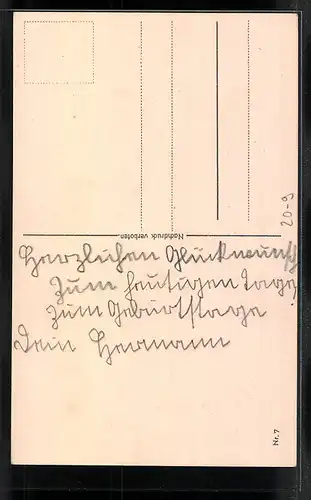 Herzlichen Glückwunsch
Zum heutigen Tage
zum Geburtstage
Dein Hermann
Nachdruck verboten
20-9
Nr. 7